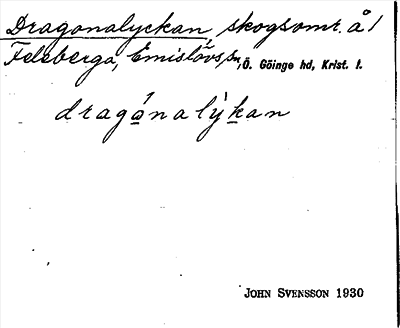 Dragonalyckan, skogsomr. å /
Felsberga, Emislövs sn, Ö. Göinge hd, Krist. l.
dragónalỳkan
JOHN SVENSSON 1930